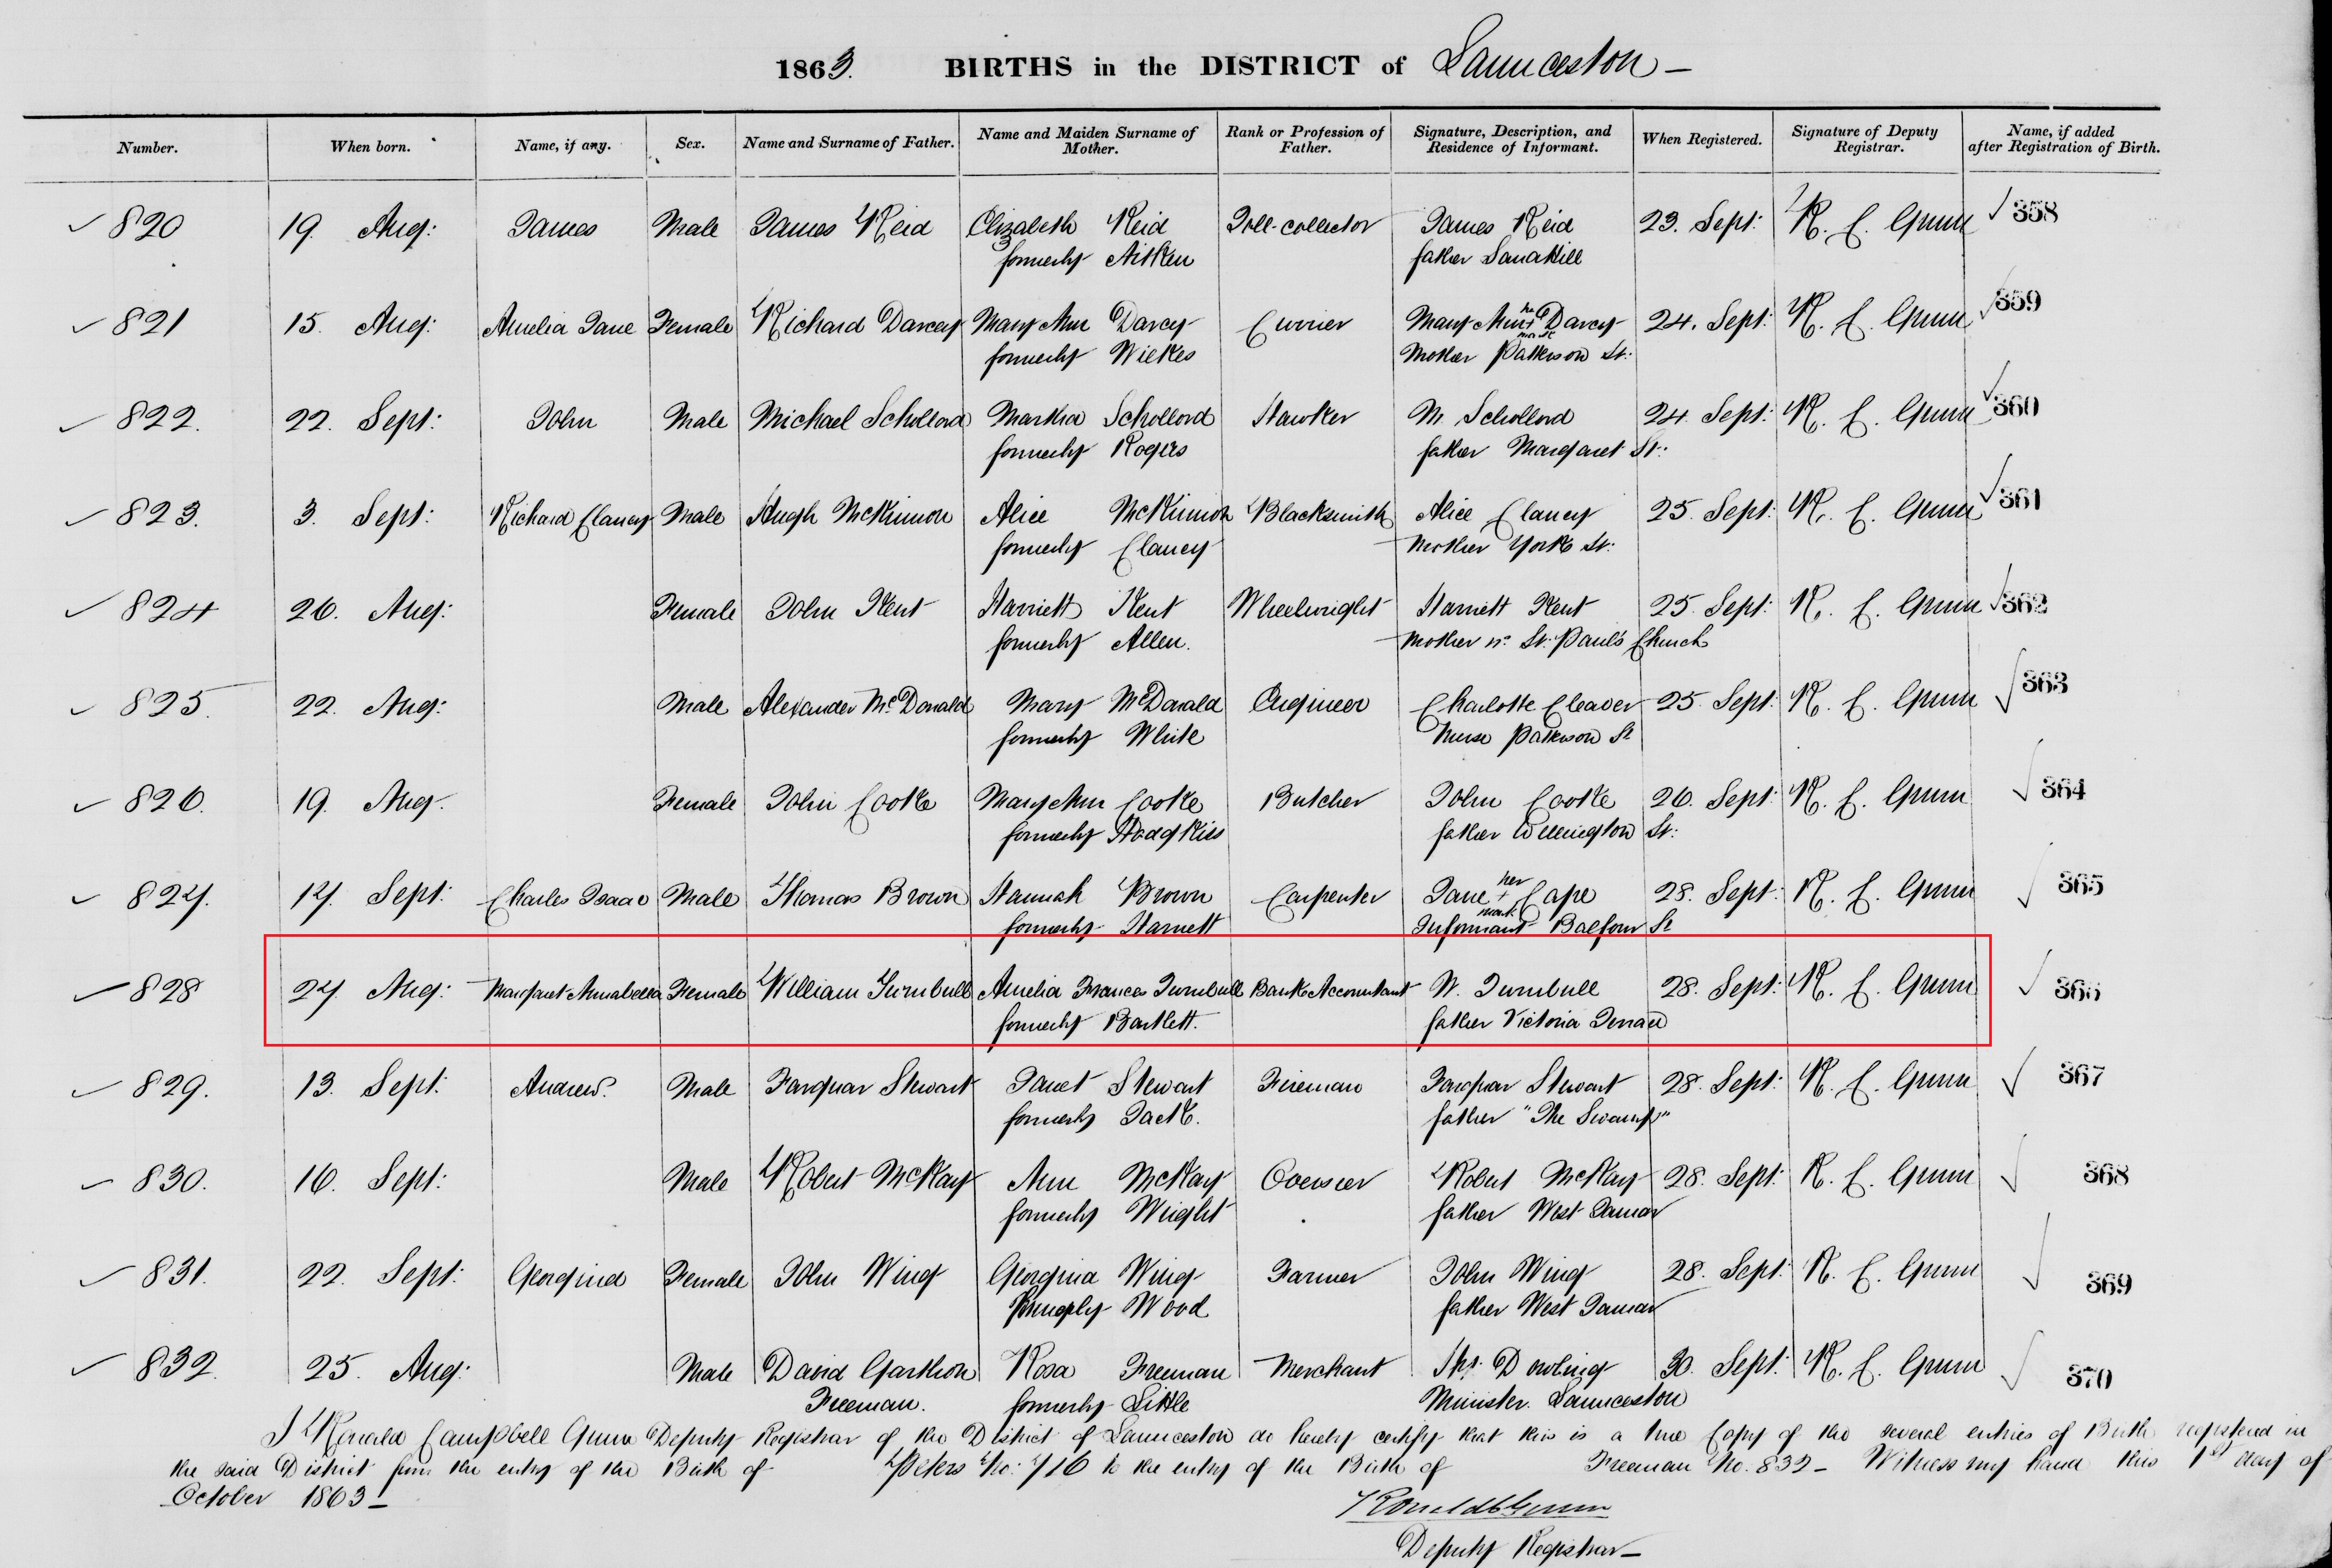 1863. BIRTHS in the DISTRICT of Launceston –
Number. When born. Name, if any. Sex. Name and Surname of Father. Name and Maiden Surname of Mother. Rank or Profession of Father. Signature, Description, and Residence of Informant. When Registered. Signature of Deputy Registrar. Name, if added after Registration of Birth.
820 19. Aug: James Male James Reid Elizabeth Reid Toll-collector James Reid 23. Sept: R. C. Gunn 358
formerly Aitken father Sandhill
821 15. Aug: Amelia Jane Female Richard Darcey Mary Ann Darcy Currier Mary Ann her + mark Darcy 24. Sept: R. C. Gunn 359
formerly Wilkes Mother Patterson St:
822. 22. Sept: John Male Michael Schollord Martha Schollord Hawker M. Schollord 24. Sept: R. C. Gunn 360
formerly Rogers father Margaret St:
823. 3. Sept: Richard Clancy Male Hugh McKinnon Alice McKinnon Blacksmith Alice Clancy 25. Sept: R. C. Gunn 361
formerly Clancy Mother York St:
824 26. Aug: Female John Kent Harriett Kent Wheelwright Harriett Kent 25. Sept: R. C. Gunn 362
formerly Allen. Mother nr St. Paul's Church
825. 22. Aug: Male Alexander McDonald Mary McDonald Engineer Charlotte Cleaver 25. Sept: R. C. Gunn 363
formerly White Nurse Patterson St
826. 19. Aug. Female John Cooke Mary Ann Cooke Butcher John Cooke 26. Sept: R. C. Gunn 364
formerly Hodgkiss father Wellington St:
827. 17. Sept: Charles Isaac Male Thomas Brown Hannah Brown Carpenter Jane her + mark Cape 28. Sept: R. C. Gunn 365
formerly Harnett Informant Balfour St
828 27. Aug: Margaret Annabella Female William Turnbull Amelia Frances Turnbull Bank Accountant W. Turnbull 28. Sept: R. C. Gunn 366
formerly Bartlett. father Victoria Terrace
829. 13. Sept: Andrew. Male Farquar Stewart Janet Stewart Fireman Farquar Stewart 28. Sept: R. C. Gunn 367
formerly Jack. father "The Swamp"
830. 16. Sept: Male Robert McKay Ann McKay Overseer Robert McKay 28. Sept: R. C. Gunn 368
formerly Wright father West Tamar
831. 22. Sept: Georgina Female John Wing Georgina Wing Farmer John Wing 28. Sept: R. C. Gunn 369
formerly Wood father West Tamar
832. 25. Aug: Male David Garthon Rosa Freeman Merchant Dowling 30. Sept: R. C. Gunn 370
Freeman. formerly Little Minister. Launceston
I Ronald Campbell Gunn Deputy Registrar of the District of Launceston do hereby certify that this is a true Copy of the several entries of Birth registered in
the said District from the entry of the Birth of Peters No: 716 to the entry of the Birth of Freeman No. 832 – Witness my hand this 1st day of
October 1863 –
Ronald C Gunn
Deputy Registrar –